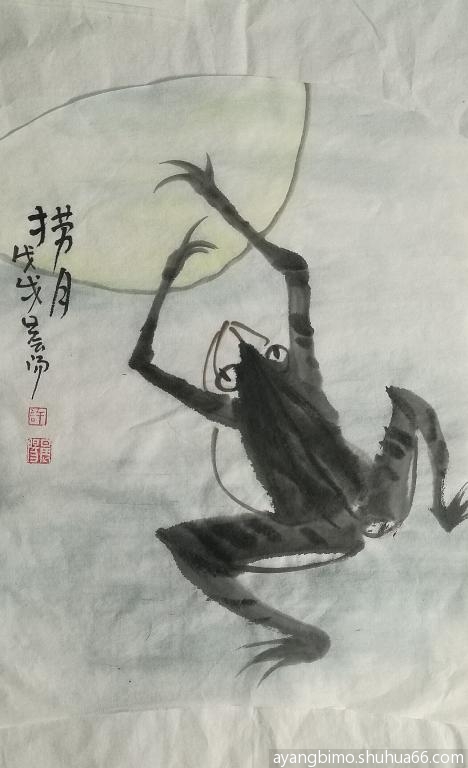 捞月
戊戌晨阳
ayangbimo.shuhua66.com